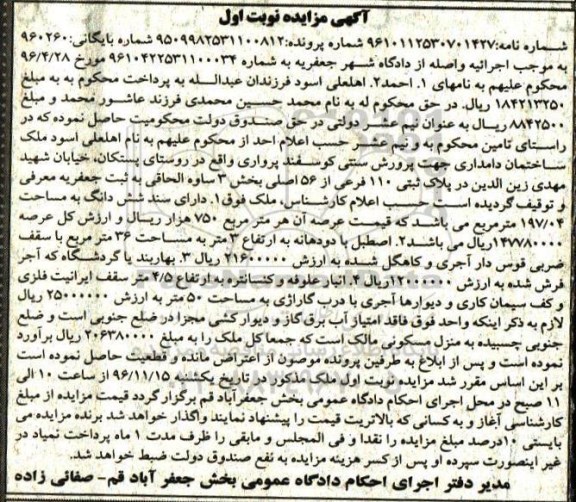 آگهی مزایده نوبت اول
شماره نامه:۹۶۱۰۱۱۲۵۳۰۷۰۱۴۲۷ شماره پرونده:۹۵۰۹۹۸۲۵۳۱۱۰۰۸۱۲ شماره بایگانی:۹۶۰۲۶۰
به موجب اجرائیه واصله از دادگاه شهر جعفریه به شماره ۹۶۱۰۴۲۲۵۳۱۱۰۰۰۳۴ مورخ ۹۶/۴/۲۸
محکوم علیهم به نامهای ۱. احمد۲. اهلعلی اسود فرزندان عبدالله به پرداخت محکوم به به مبلغ
۱۸۴۲۱۳۲۵۰ ریال. در حق محکوم له به نام محمد حسین محمدی فرزند عاشور محمد و مبلغ
۸۸۴۲۵۰۰ ریال به عنوان نیم عشر دولتی در حق صندوق دولت محکومیت حاصل نموده که در
راستای تامین محکوم به و نیم عشر حسب اعلام احد از محکوم علیهم به نام اهلعلی اسود ملک
ساختمان دامداری جهت پرورش سنتی گوسفند پرواری واقع در روستای پستکان، خیابان شهید
مهدی زین الدین در پلاک ثبتی ۱۱۰ فرعی از ۵۶ اصلی بخش ۳ ساوه الحاقی به ثبت جعفریه معرفی
و توقیف گردیده است حسب اعلام کارشناس، ملک فوق۱. دارای سند شش دانگ به مساحت
۱۹۷/۰۴ مترمربع می باشد که قیمت عرصه آن هر متر مربع ۷۵۰ هزار ریال و ارزش کل عرصه
۱۴۷۷۸۰۰۰۰ریال می باشد۲. اصطبل با دودهانه به ارتفاع ۳ متر به مساحت ۳۶ متر مربع با سقف
ضربی قوس دار آجری و کاهگل شده به ارزش ۲۱۶۰۰۰۰۰ ریال ۳. بهاربند یا گردشگاه که آجر
فرش شده به ارزش ۱۲۰۰۰۰۰۰ریال ۴. انبار علوفه و کنسانتره به ارتفاع ۴/۵ متر سقف ایرانیت فلزی
و کف سیمان کاری و دیوارها آجری با درب گاراژی به مساحت ۵۰ متر به ارزش ۲۵۰۰۰۰۰۰ ریال
لازم به ذکر اینکه واحد فوق فاقد امتیاز آب برق گاز و دیوار کشی مجزا در ضلع جنوبی است و ضلع
جنوبی چسبیده به منزل مسکونی مالک است که جمعا کل ملک را به مبلغ ۲۰۶۳۸۰۰۰۰ ریال برآورد
نموده است و پس از ابلاغ به طرفین پرونده مصون از اعتراض مانده و قطعیت حاصل نموده است
بر این اساس مقرر شد مزایده نوبت اول ملک مذکور در تاریخ یکشنبه ۹۶/۱۱/۱۵ از ساعت ۱۰ الی
۱۱ صبح در محل اجرای احکام دادگاه عمومی بخش جعفرآباد قم برگزار گردد قیمت مزایده از مبلغ
کارشناسی آغاز و به کسانی که بالاتریت قیمت را پیشنهاد نمایند واگذار خواهد شد برنده مزایده می
بایستی ۱۰درصد مبلغ مزایده را نقدا و فی المجلس و مابقی را ظرف مدت ۱ ماه پرداخت نمیاد در
غیر اینصورت سپرده او پس از کسر هزینه مزایده به نفع صندوق دولت ضبط خواهد شد.
مدیر دفتر اجرای احکام دادگاه عمومی بخش جعفر آباد قم- صفائی زاده